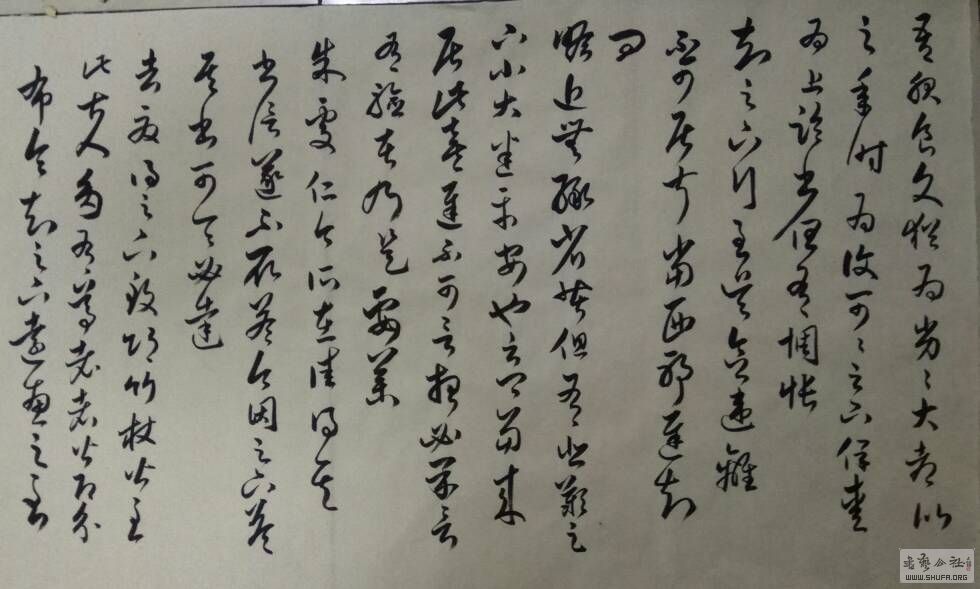 吾服食久猶為劣劣大都比
之年時為復可可足下保愛
為上臨書但有惆悵
知足下行至吳念違離
不可居叔當西耶遲知
問
瞻近無緣省苦但有悲歎足
下小大悉平安也云卿當來
居此喜遲不可言想必果言
有驗者乃是要藥
朱處仁今所在往得其
書信遂不取答今因足下答
其書可令必達
去夏得足下致邛竹杖皆至
此士人多有尊老者皆即分
布令知足下遠惠之至
書藝公社
WWW.SHUFA.ORG